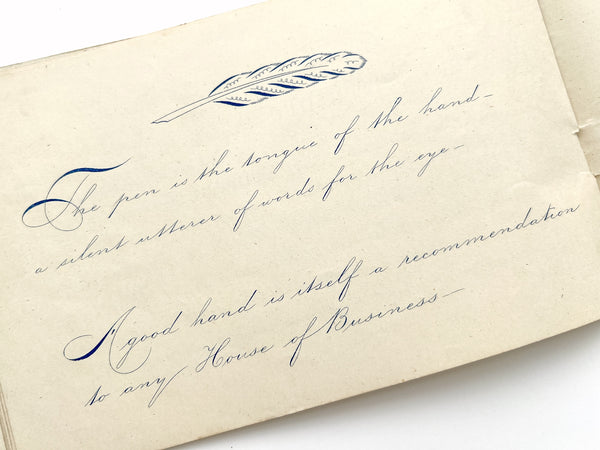 The pen is the tongue of the hand—
a silent utterer of words for the eye—
A good hand is itself a recommendation
to any House of Business—